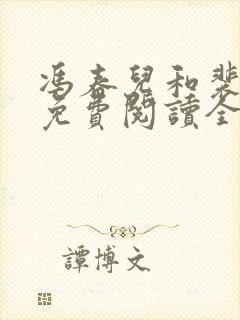 馮春兒和裴
免費閱讀全
譚博文